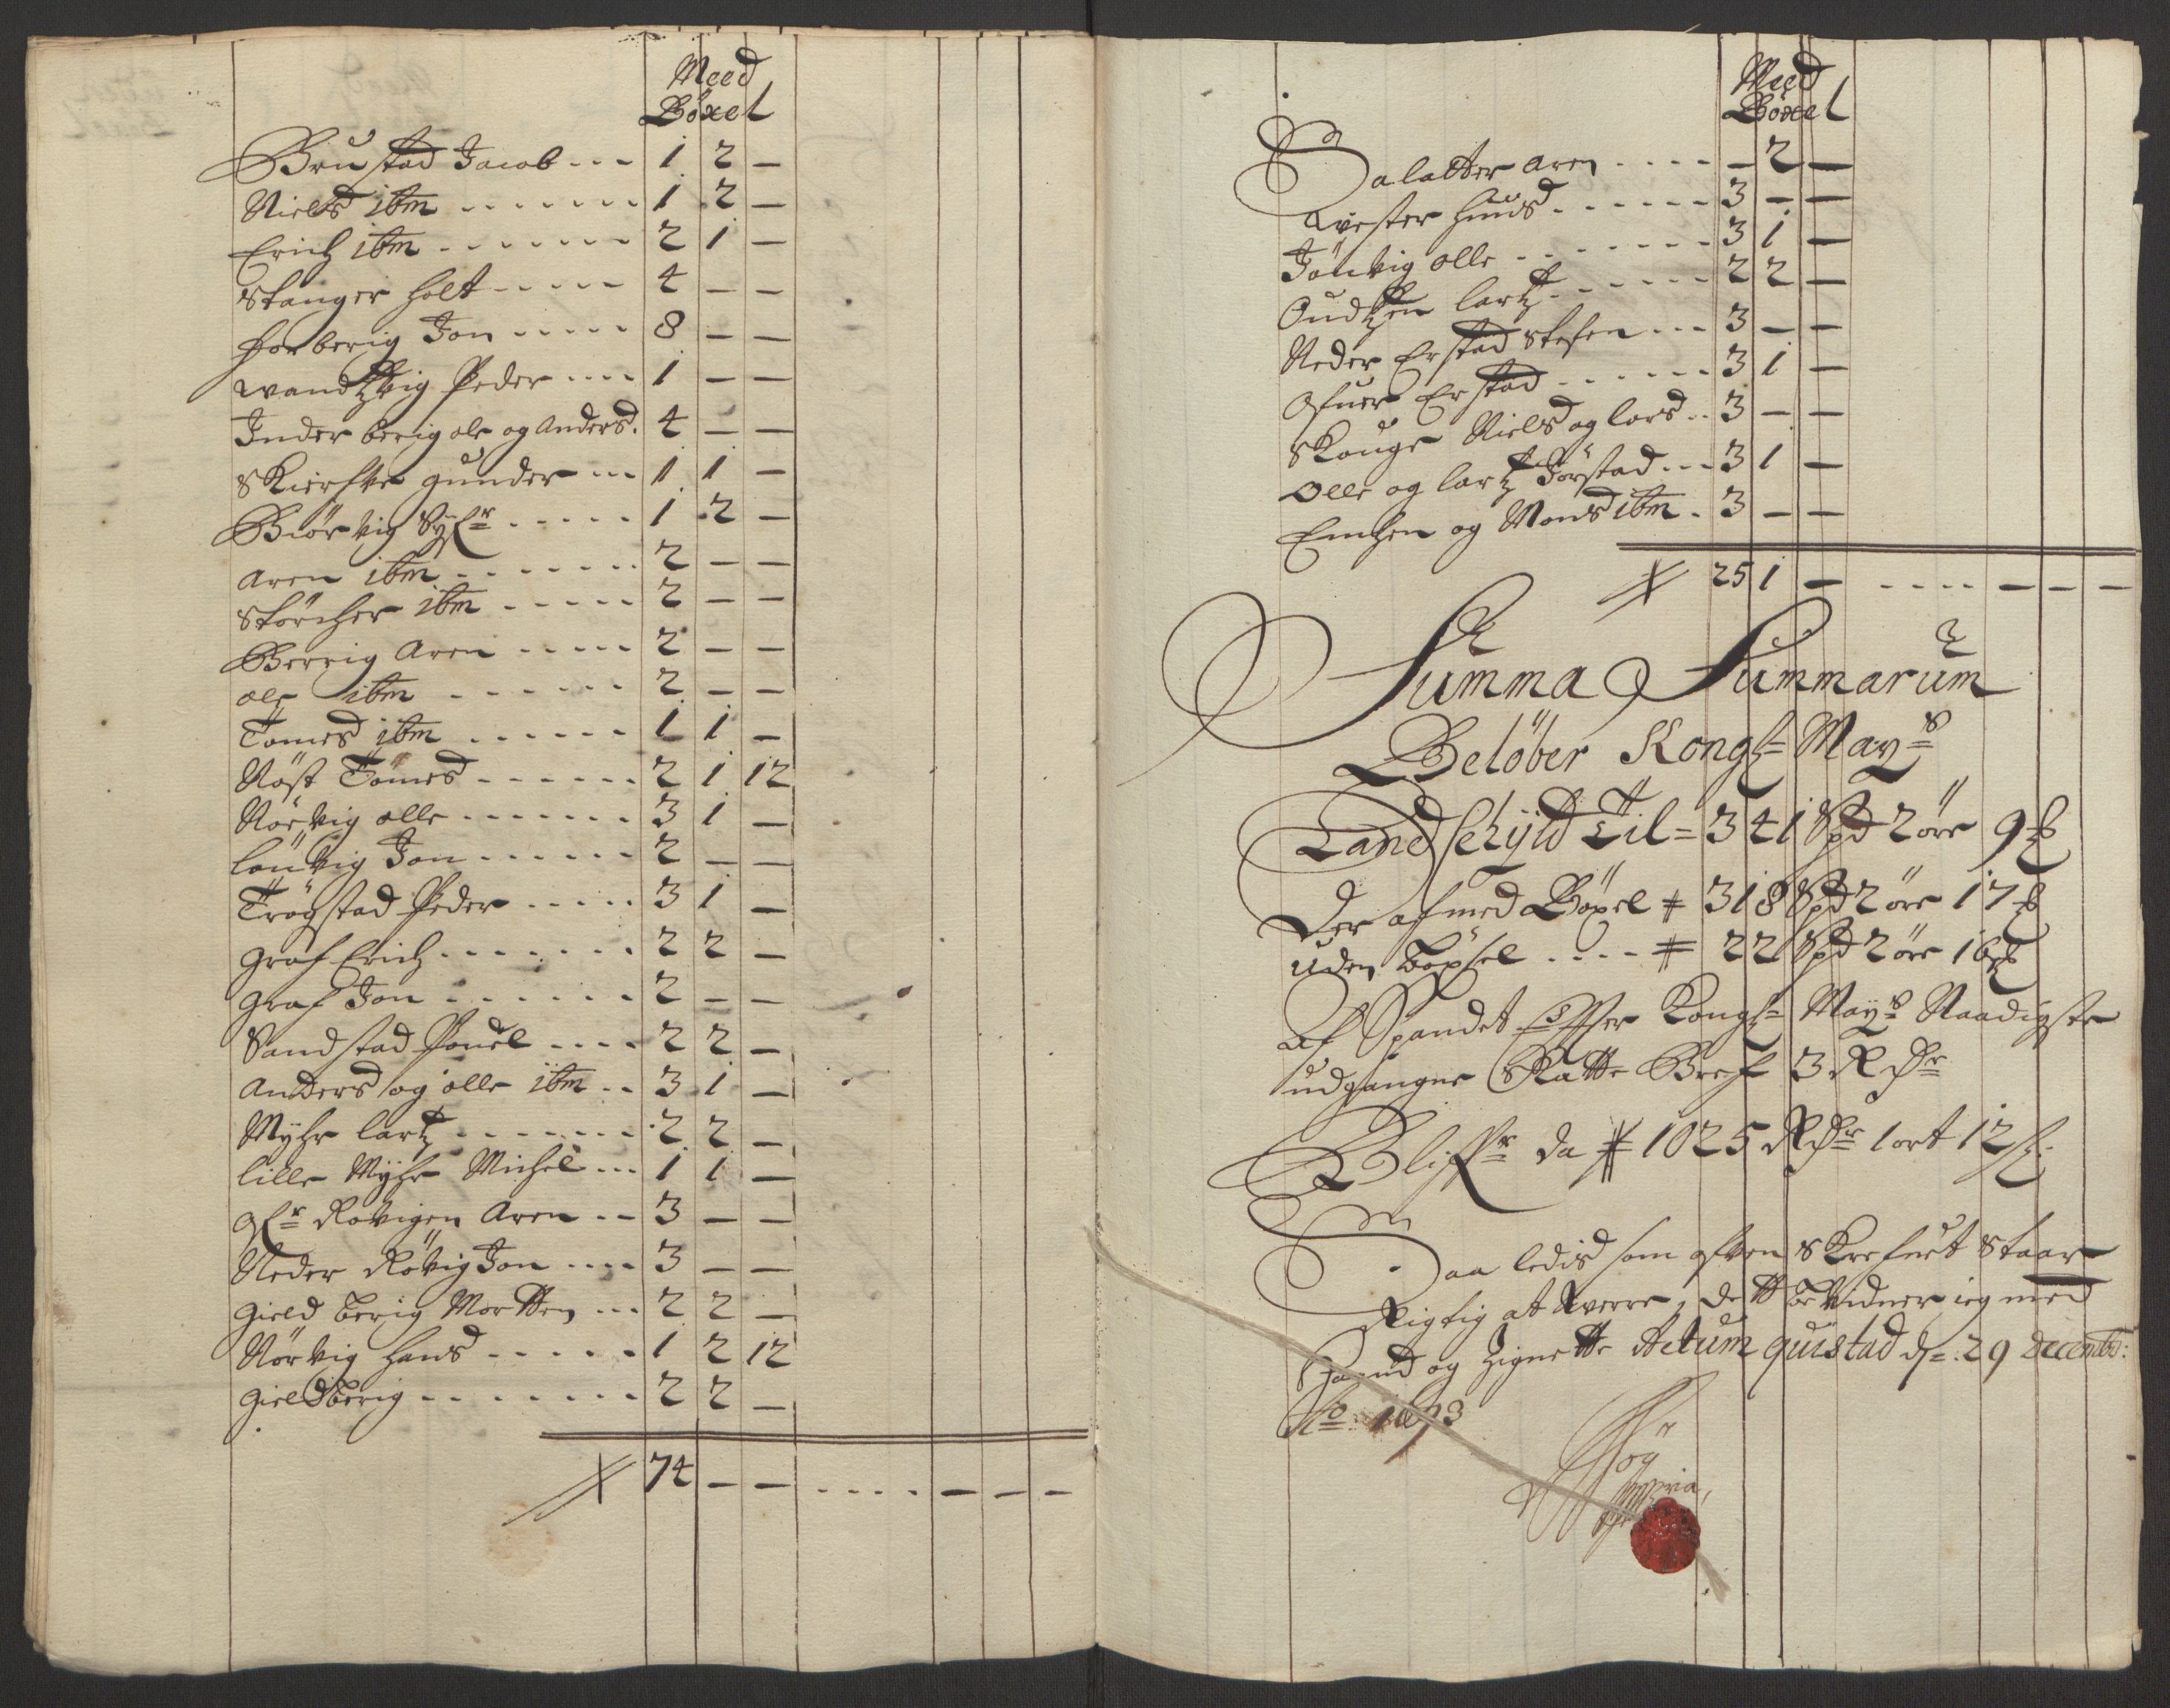 Meed
Böxel
Brustad Jacob --- 1 2 –
Niels ibm ------- 1 2 –
Erich ibm ------- 2 1 –
Stanger holt ----- 4 – –
Horberig Jon ----- 8 – –
Wandtzvig Peder ---- 1 – –
Inder berig ole og Anders. 4 – –
Skierfve gunder --- 1 1 –
Biörvig Syfr ----- 1 2 –
Aren ibm ------- 2 – –
Störcher ibm ----- 2 – –
Berrig Aren ----- 2 – –
ole ibm ------ 2 – –
Tomes ibm ------ 1 1 –
Nöst Tömes ------ 2 1 12
Nörvig olle ------- 3 1 –
Louvig Jon ------ 2 – –
Trögstad Peder ----- 3 1 –
Graf Erich ------- 2 2 –
Graf Jon ------ 2 – –
Sandstad Pouel ---- 2 2 –
Anders og olle ibm -- 3 1 –
Myhr lartz ------- 2 2 –
lille Myhr Michel --- 1 1 –
Ofr Rövigen Aren -- 3 – –
Neder Rövig Jon ---- 3 – –
Gield berig Mortten --- 2 2 –
Nörvig hans ----- 1 2 12
Gieldberig -------- 2 2 –
74 – – ---- – – –
Meed
Böxel
Salatter Aren ---- – 2 –
Wester huus ------ 3 – –
Jönvig olle ------- 3 1 –
Oudtzen lartz ------ 2 2 –
Neder Erstad Stefen --- 3 – –
Ofuer Erstad ------ 3 1 –
Skouge Niels og lars -- 3 – –
Olle og lartz Förstad --- 3 1 –
Emhen og Mons ibm - 3 – –
25 1 – ---- – – –
Summa Summarum
Belöber Kongl= Mays
Landschyld Til = 341 Spd 2 öre 9 
Der af med Böxel 318 Spd 2 öre 17
Uden Böxsel ---- 22 Spd 2 öre 16
Af Spandet Effter Kongl= Mays Naadigste
udgangne Skatte Bref 3 Rdr
Bliffr da 1025 Rdr 1 ort 12 s.
Saa ledis som ofven skrefuet staar
Rigtig at Werre, dette bevidner ieg med
Haand og Zignette Actum quistad d= 29 Decemb:
Ao 1693
mpria,